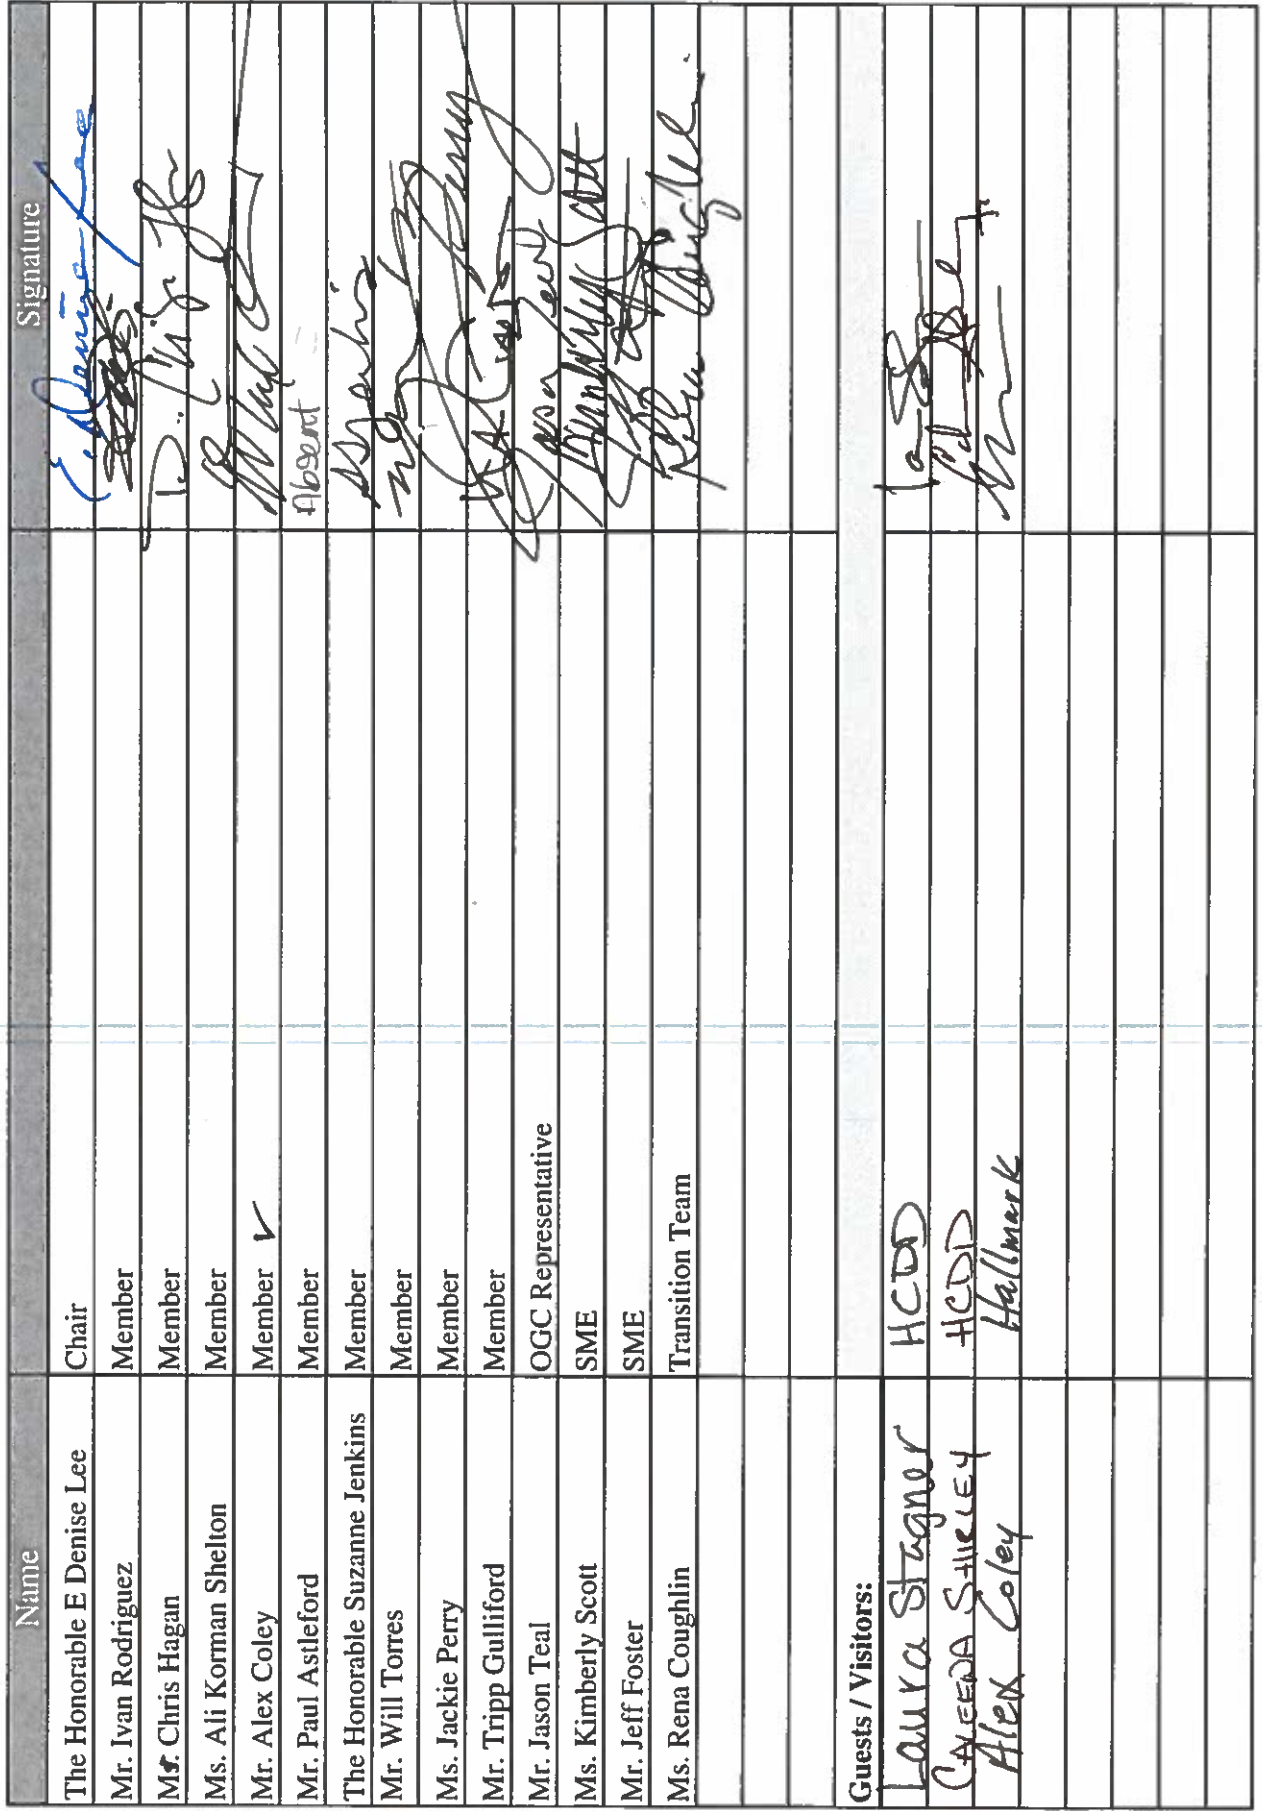 Name Signature
The Honorable E Denise Lee Chair E. Denise Lee
Mr. Ivan Rodriguez Member
Ms. Chris Hagan Member D. Chris
Ms. Ali Korman Shelton Member
Mr. Alex Coley Member ✓
Mr. Paul Astleford Member Absent
The Honorable Suzanne Jenkins Member
Mr. Will Torres Member
Ms. Jackie Perry Member Perry
Mr. Tripp Gulliford Member
Mr. Jason Teal OGC Representative Jason Teal
Ms. Kimberly Scott SME Scott
Mr. Jeff Foster SME
Ms. Rena Coughlin Transition Team Rena Coughlin
Guests / Visitors:
Laura Stagner HCDD
CALEENA SHIRLEY HCDD
Alex Coley Hallmark